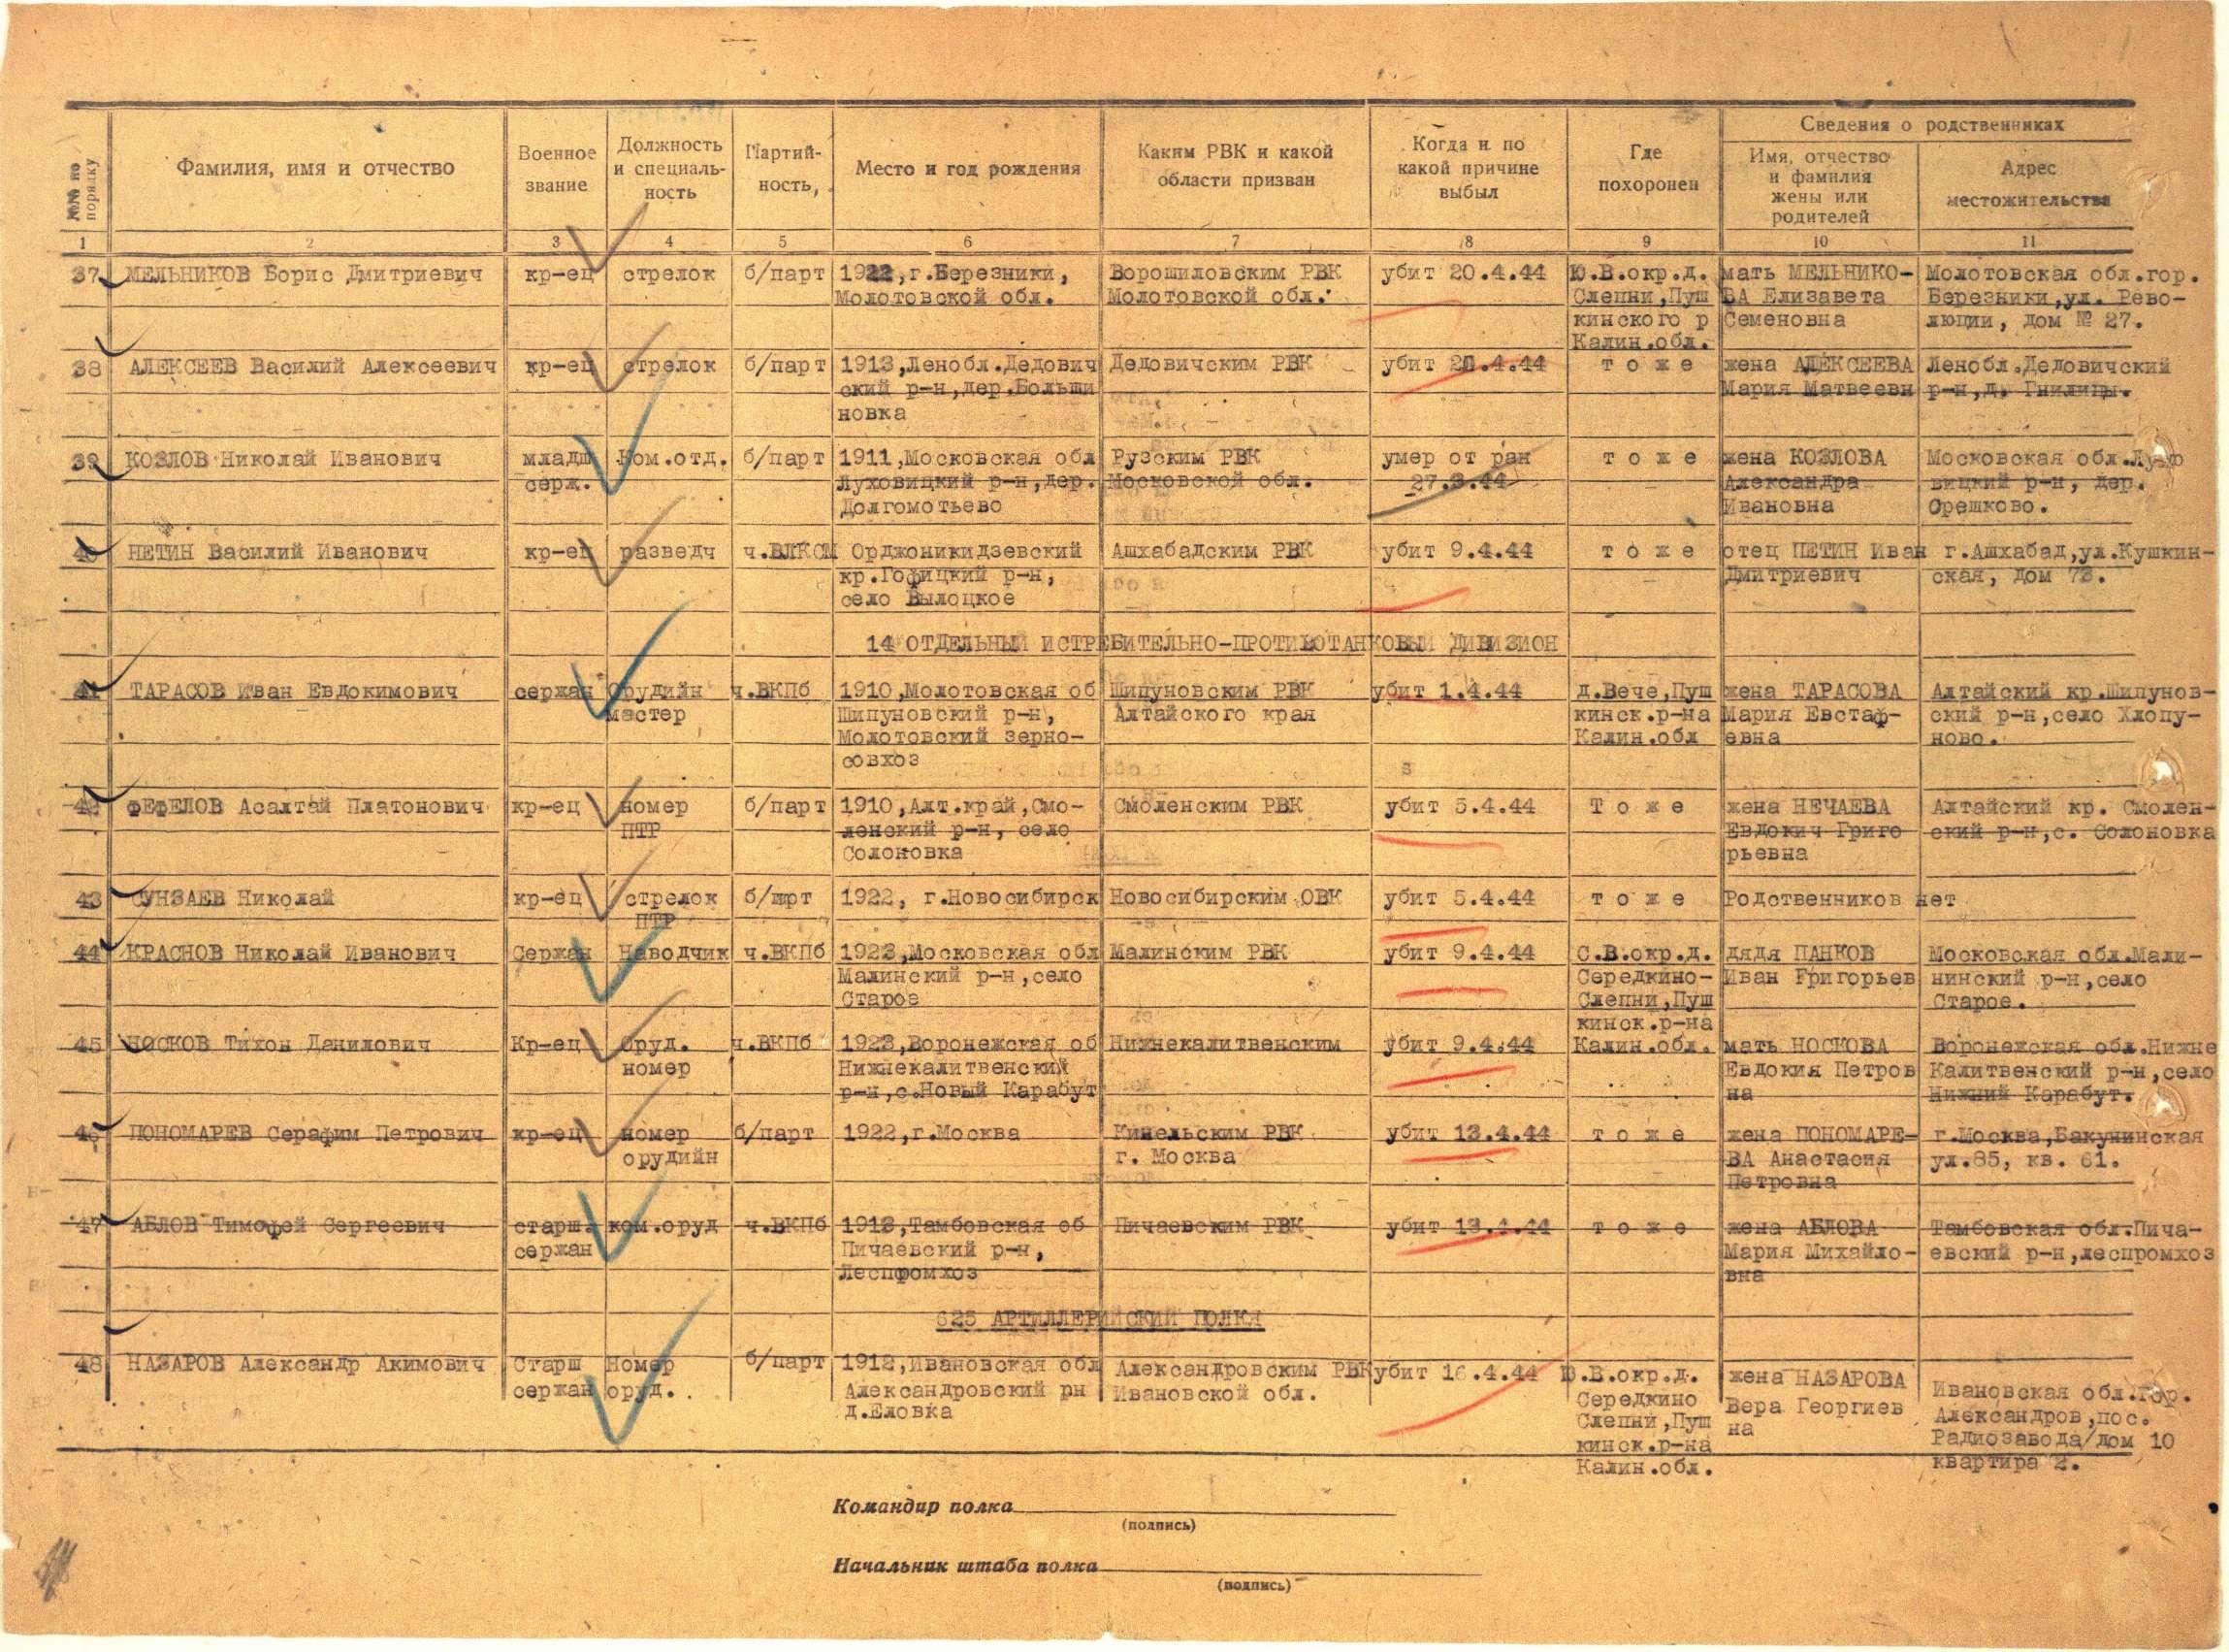 №№ по порядку
Фамилия, имя и отчество
Военное звание
Должность и специаль-ность
Партий-ность,
Место и год рождения
Каким РВК и какой области призван
Когда и по какой причине выбыл
Где похоронен
Сведения о родственниках
Имя, отчество и фамилия жены или родителей
Адрес местожительства
1 2 3 4 5 6 7 8 9 10 11
37 МЕЛЬНИКОВ Борис Дмитриевич кр-ец стрелок б/парт 1922,г.Березники, Ворошиловским РВК убит 20.4.44 Ю.В.окр.д. мать МЕЛЬНИКО- Молотовская обл.гор.
Молотовской обл. Молотовской обл. Слепни,Пуш ВА Елизавета Березники,ул. Рево-
кинского р Семеновна люции, дом № 27.
Калин.обл.
38 АЛЕКСЕЕВ Василий Алексеевич кр-ец стрелок б/парт 1913,Ленобл.Дедович Дедовичским РВК убит 20.4.44 т о ж е жена АЛЕКСЕЕВА Ленобл.Дедовичский
ский р-н,дер.Больши Мария Матвеевн р-н,д. Гнилицы.
новка
39 КОЗЛОВ Николай Иванович младш Ком.отд. б/парт 1911,Московская обл Рузским РВК умер от ран т о ж е жена КОЗЛОВА Московская обл.Лухо
серж. Луховицкий р-н,дер. Московской обл. 27.3.44 Александра вицкий р-н, дер.
Долгомотьево Ивановна Орешково.
40 ПЕТИН Василий Иванович кр-ец разведч ч.ВЛКСМ Орджоникидзевский Ашхабадским РВК убит 9.4.44 т о ж е отец ПЕТИН Иван г.Ашхабад,ул.Кушкин-
кр.Гофицкий р-н, Дмитриевич ская, дом 73.
село Вылоцкое
14 ОТДЕЛЬНЫЙ ИСТРЕБИТЕЛЬНО-ПРОТИВОТАНКОВЫЙ ДИВИЗИОН
41 ТАРАСОВ Иван Евдокимович сержан Орудийн ч.ВКПб 1910,Молотовская об Шипуновским РВК убит 1.4.44 д.Вече,Пуш жена ТАРАСОВА Алтайский кр.Шипунов-
мастер Шипуновский р-н, Алтайского края кинск.р-на Мария Евстаф- ский р-н,село Хлопу-
Молотовский зерно- Калин.обл евна ново.
совхоз
42 ФЕФЕЛОВ Асалтай Платонович кр-ец номер б/парт 1910,Алт.край,Смо- Смоленским РВК убит 5.4.44 Т о ж е жена НЕЧАЕВА Алтайский кр. Смолен-
ПТР ленский р-н, село Евдокич Григо ский р-н,с. Солоновка
Солоновка рьевна
43 СУНЗАЕВ Николай кр-ец стрелок б/прт 1922, г.Новосибирск Новосибирским ОВК убит 5.4.44 т о ж е Родственников нет
ПТР
44 КРАСНОВ Николай Иванович Сержан Наводчик ч.ВКПб 1923,Московская обл Малинским РВК убит 9.4.44 С.В.окр.д. дядя ПАНКОВ Московская обл.Мали-
Малинский р-н,село Середкино- Иван Григорьев нинский р-н,село
Старое Слепни,Пуш Старое.
кинск.р-на
45 НОСКОВ Тихон Данилович Кр-ец Оруд. ч.ВКПб 1923,Воронежская об Нижнекалитвенским убит 9.4.44 Калин.обл. мать НОСКОВА Воронежская обл.Нижне
номер Нижнекалитвенский Евдокия Петров Калитвенский р-н,село
р-н,с.Новый Карабут на Нижний Карабут.
46 ПОНОМАРЕВ Серафим Петрович кр-ец номер б/парт 1922,г.Москва Кинельским РВК убит 13.4.44 т о ж е жена ПОНОМАРЕ- г.Москва,Бакунинская
орудийн г. Москва ВА Анастасия ул.85, кв. 61.
Петровна
47 АБЛОВ Тимофей Сергеевич старш. ком.оруд ч.ВКПб 1913,Тамбовская об Пичаевским РВК убит 13.4.44 т о ж е жена АБЛОВА Тамбовская обл.Пича-
сержан Пичаевский р-н, Мария Михайло- евский р-н,леспромхоз
Леспромхоз вна
625 АРТИЛЛЕРИЙСКИЙ ПОЛКА
48 НАЗАРОВ Александр Акимович Старш Номер б/парт 1912,Ивановская обл Александровским РВК убит 16.4.44 Ю.В.окр.д. жена НАЗАРОВА Ивановская обл.гор.
сержан оруд. Александровский рн Ивановской обл. Середкино Вера Георгиев Александров,пос.
д.Еловка Слепни,Пуш на Радиозавода/дом 10
кинск.р-на квартира 2.
Калин.обл.
Командир полка
(подпись)
Начальник штаба полка
(подпись)